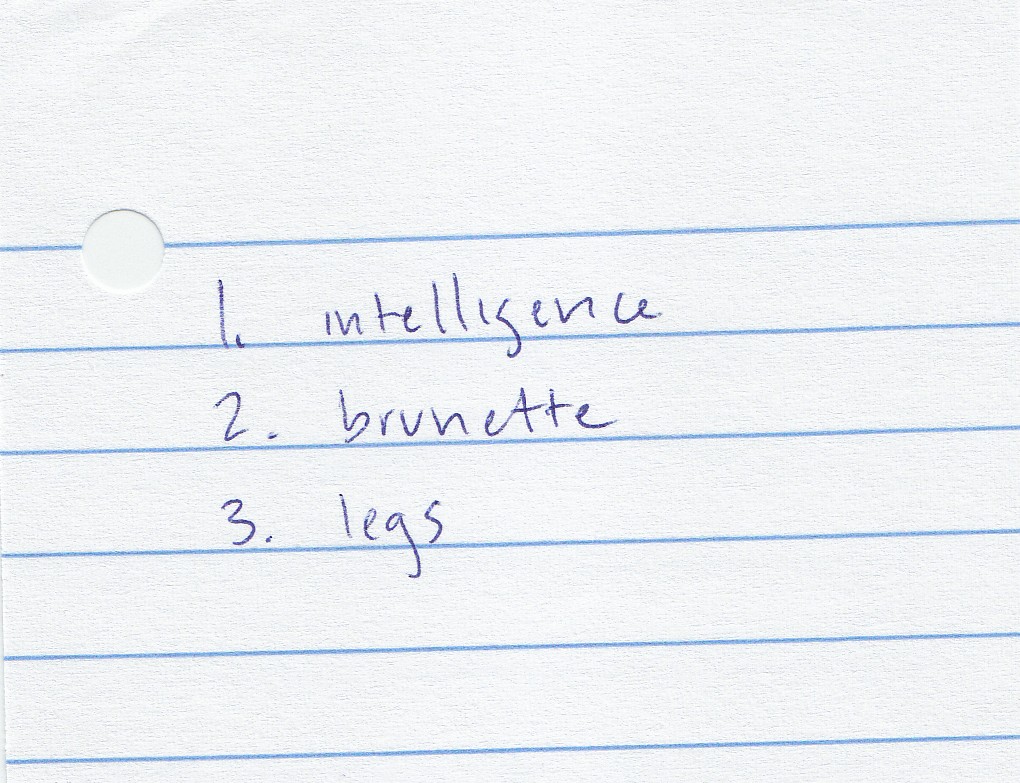 1. intelligence
2. brunette
3. legs